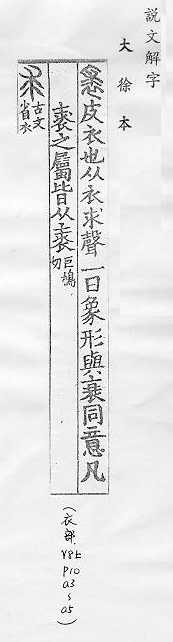 說文解字
大徐本
裘皮衣也从衣求聲一曰象形與衰同意凡
裘之屬皆从裘巨鳩切
求古文省衣
(衣部 V8上
P10
a3
s
a5)